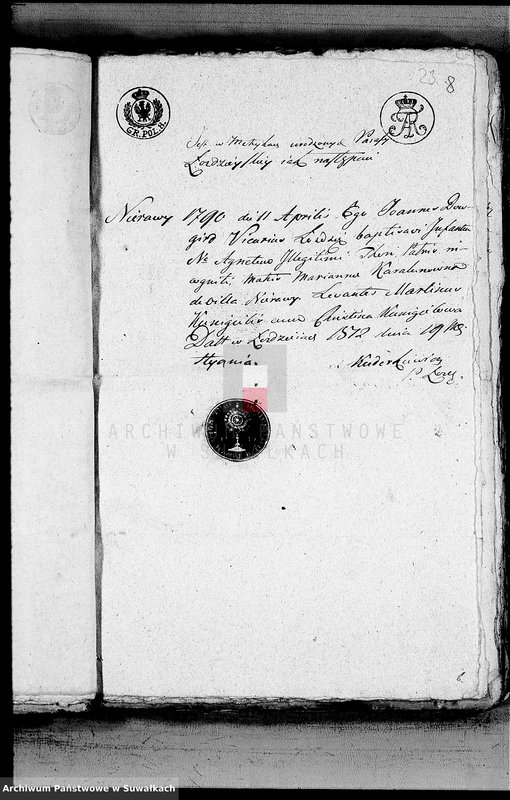 23. 8
GR.POL.8.
Jest w Metrykach urodzonych Parafii
Łoździeyskiey iak następuie
Nieravy 1790 die 11 Aprilis Ego Joannes Dow
gird Vicarius Łozdzie baptisavi Infantem
Ne Agnetem Illegitimi Thori, Patris in
cogniti, Matris Marianna Karalunowna
de villa Nieravy Levantes Martinus
cum Christina
Datt w Łoździeiach 1812 dnia 19 Mca
Stycznia.
ARCHIWUM PAŃSTWOWE
W SUWAŁKACH
6
Archiwum Państwowe w Suwałkach